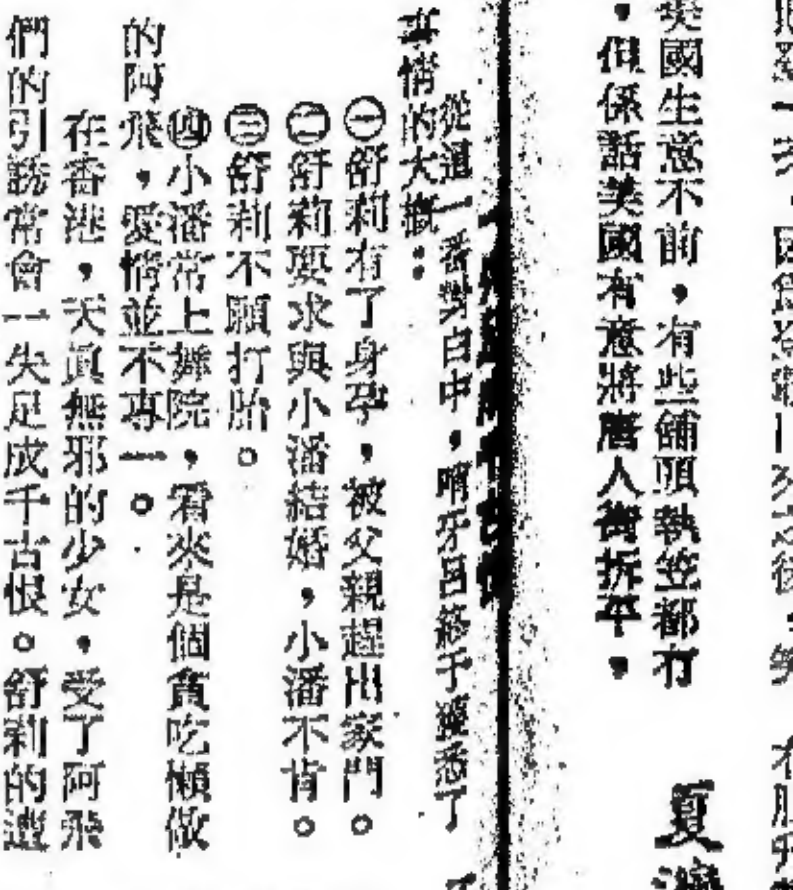 美國生意不前，有些舖頭執笠都冇
，但係話美國有意將唐人街拆平，
夏灣
從這一番對白中，啃牙呂終于獲悉了
事情的大概：
㊀舒莉有了身孕，被父親趕出家門。
㊁舒莉要求與小潘結婚，小潘不肯。
㊂舒莉不願打胎。
㊃小潘常上舞院，看來是個貪吃懶做
的阿飛，愛情並不專一。
在香港，天眞無邪的少女，受了阿飛
們的引誘常會一失足成千古恨。舒莉的遭